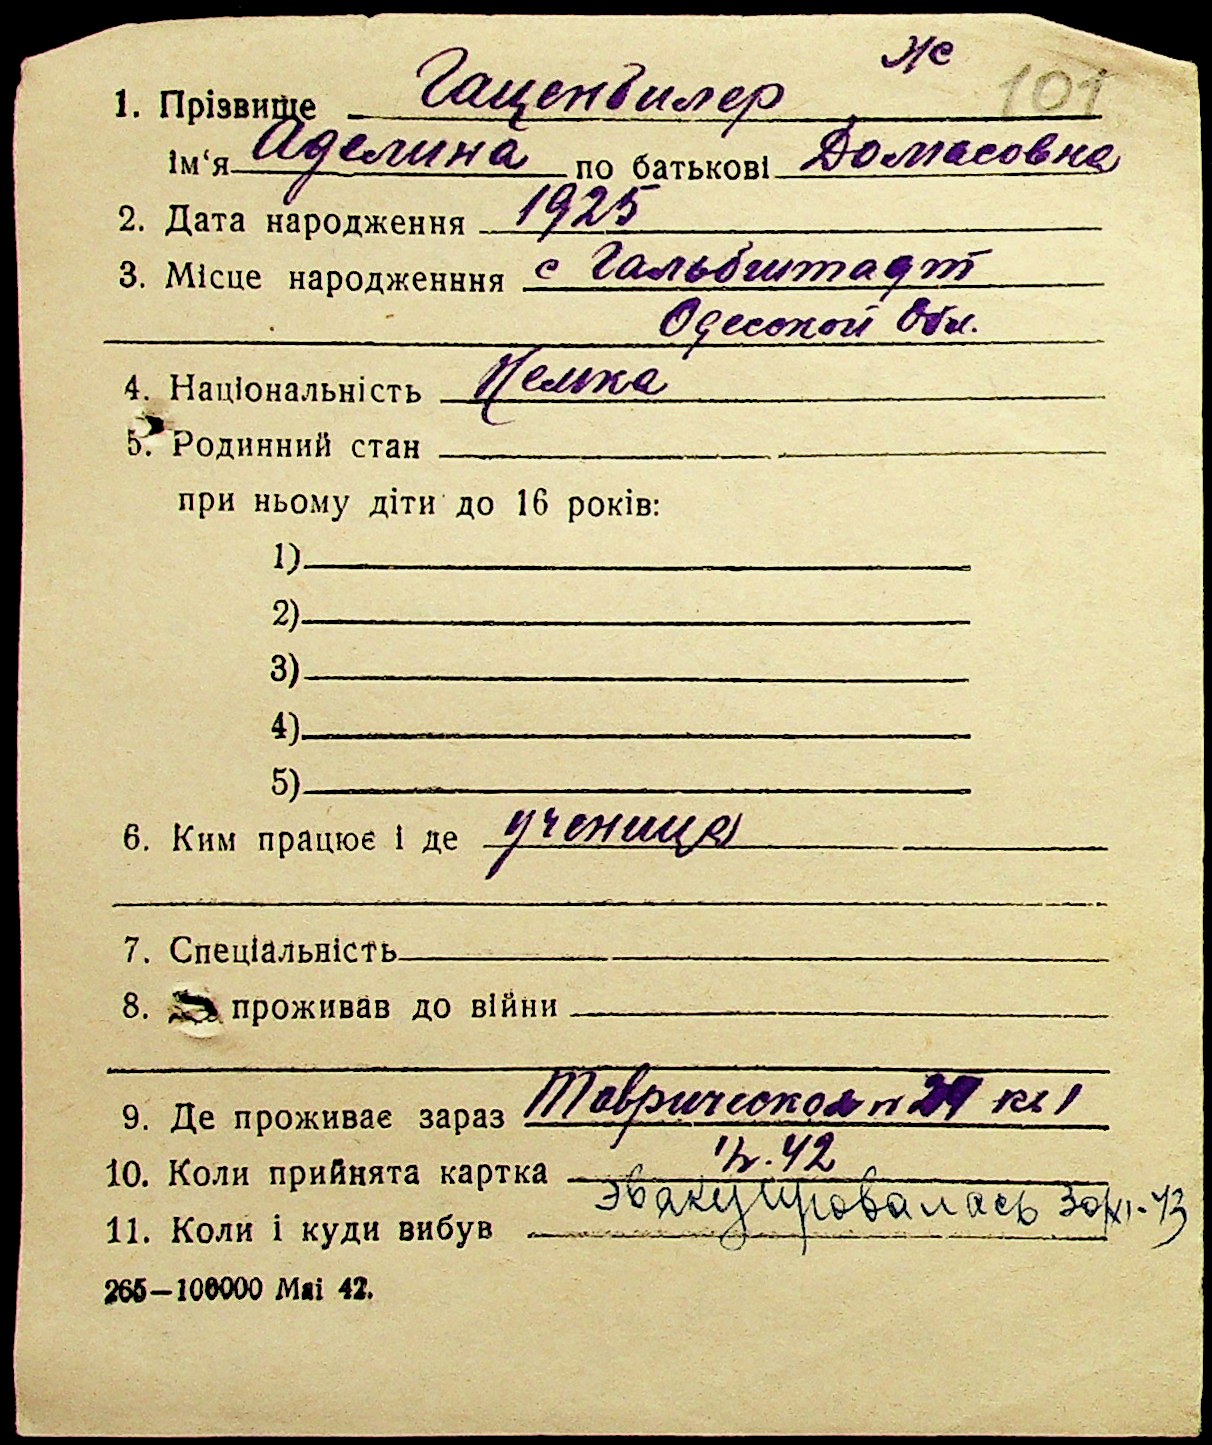 Же 101
1. Прізвище Гаценбилер
Ім‘я Аделина по батькові Домасовна
2. Дата народження 1925
3. Місце народженння с Гальбштадт
Одесской Обл.
4. Національність Немка
5. Родинний стан
при ньому діти до 16 років:
1)
2)
3)
4)
5)
6. Ким працює і де ученица
7. Спеціальність
8. проживав до війни
9. Де проживає зараз Таврическая п кв 1
10. Коли прийнята картка 42
эвакуировалась 30/XI-43
11. Коли і куди вибув
265—100000 Маі 42.